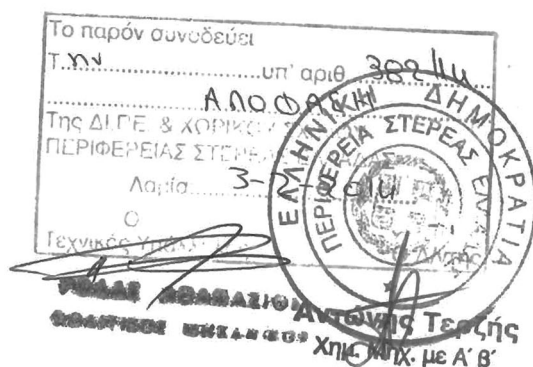 Το παρόν συνοδεύει
Τ..ην.......υπ' αριθ. 382/14
ΑΠΟΦΑΣΗ
Της ΔΙ.ΠΕ. & ΧΩΡΙΚΟΥ
ΠΕΡΙΦΕΡΕΙΑΣ ΣΤΕΡΕΑΣ
Λαμία 3- -2014
Ο
Τεχνικός
ΕΛΛΗΝΙΚΗ ΔΗΜΟΚΡΑΤΙΑ
ΠΕΡΙΦΕΡΕΙΑ ΣΤΕΡΕΑΣ
ΑΘΑΝΑΣΙΟΥ
ΠΟΛΙΤΙΚΟΣ ΜΗΧΑΝΙΚΟΣ
Αντώνης Τερζής
Χημ. Μηχ. με Α΄ Β΄